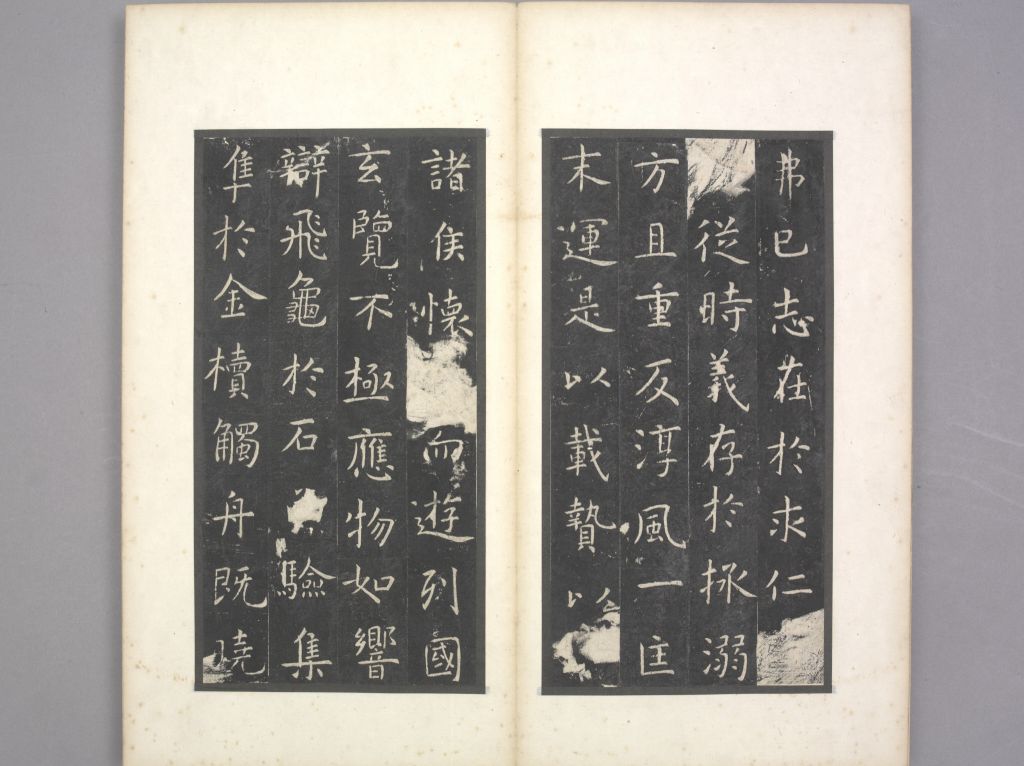 弗已志在於求仁
從時義存於拯溺
方且重反淳風一匡
末運是以載贄以
諸侯懷而遊列國
玄覽不極應物如響
辯飛龜於石驗集
隼於金櫝觸舟既曉